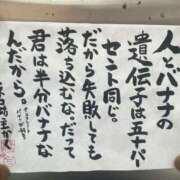 人とバナナの
遺伝子は五十パー
セント同じ。
だから失敗しても
落ち込むな。だって
君は半分バナナな
んだから。